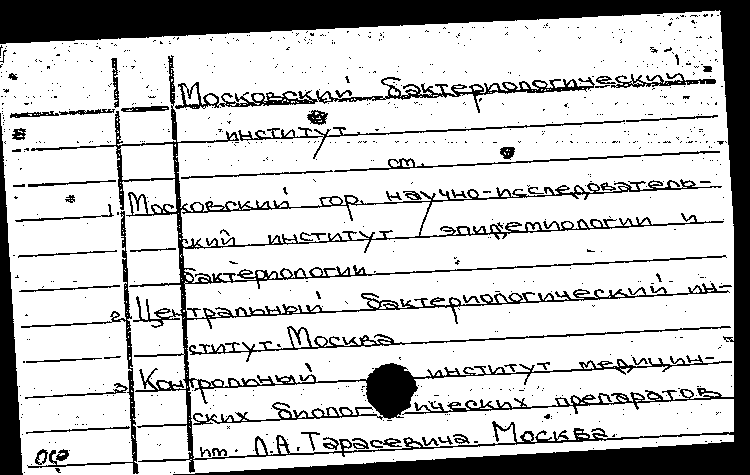 Московский бактериологический
институт
см.
1. Московский гор. научно-исследователь-
ский институт эпидемиологии и
бактериологии
2. Центральный бактериологический ин-
ститут. Москва
3. Контрольный институт медицин-
ских биологических препаратов
им. Л.А. Тарасевича. Москва.